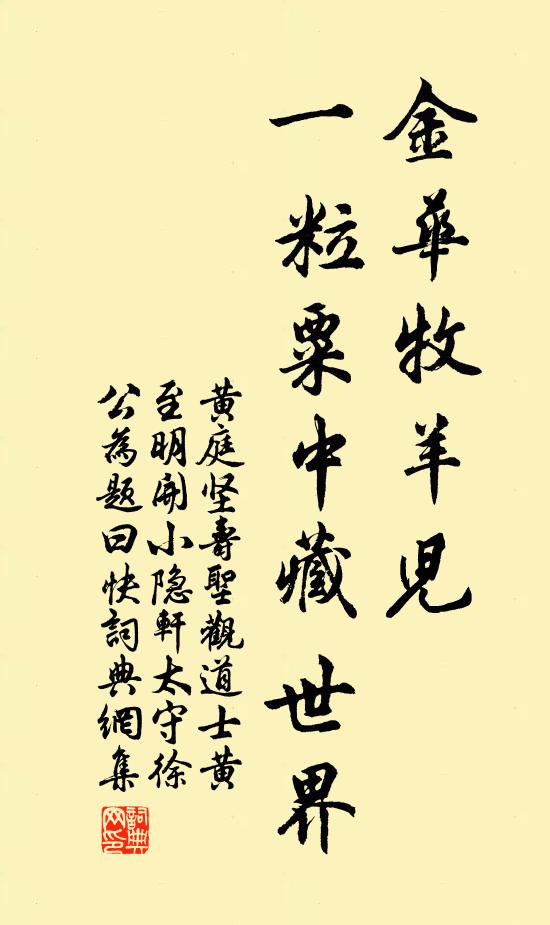 金華牧羊兒
一粒粟中藏世界
黄庭坚壽聖觀道士黄
至明開小隐軒太守徐
公為题曰快詞典網集
詞典網印